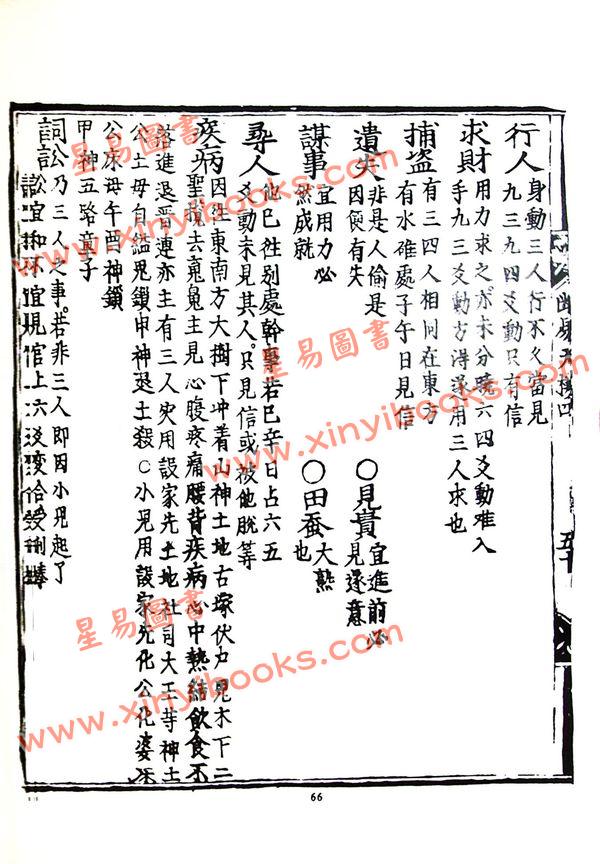 行人身動三人行不久當見
九三九四爻動只有信
求財用力求之亦未分曉六四爻動难入
手九三爻動方得遂用三人求也
捕盗有三四人相同在東方
有水碓處子午日見信
遺失非是人偷是
因便有失
○見貴宜進前必
見遂意
謀事宜用力必
然成就
○田蚕大熟
也
尋人他已往別處幹事若巳辛日占六五
爻動未見其人只見信或被他脫等
疾病因往東南方大樹下冲着山神土地古塚伏尸鬼木下二
聖 去 鬼主見心腹疼痛腰背疾病心中熱結飲食不
進退 連亦主有三人 用設家先土地社司大王等神土
公土母自縊鬼鎖申神 土殺○小児用設家先化公化婆床
公床母午酉神鎖
甲神五路童子
詞訟乃三人之事若非三人即因小児起了
訟宜和 宜見官上六
星易圖書
www.xinyibooks.com
星易圖書
www.xinyibooks.com
星易圖書
www.xinyibooks.com
66